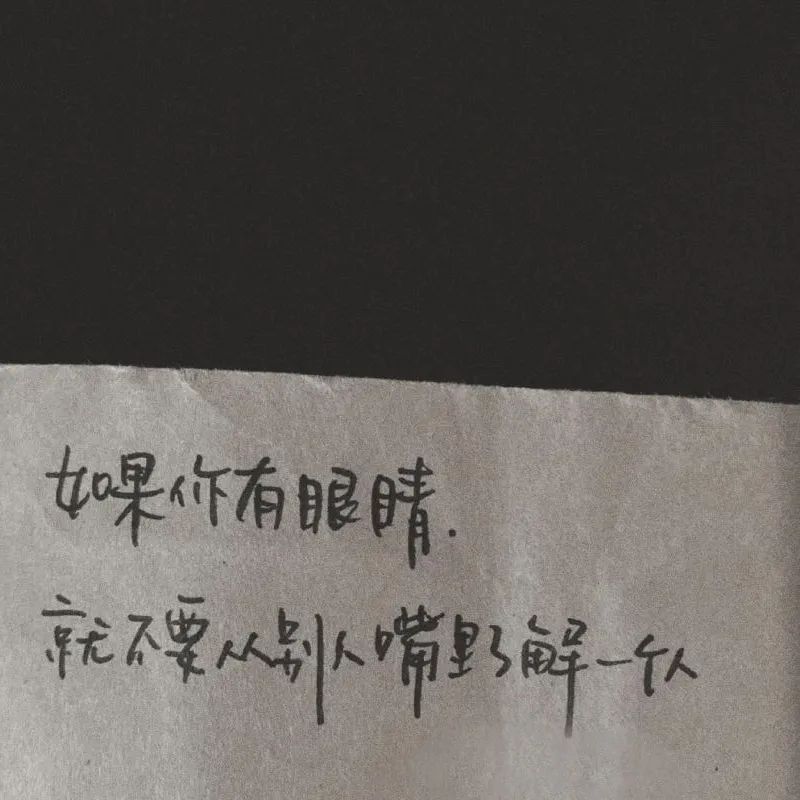 如果你有眼睛.
就不要从别人嘴里了解一个人